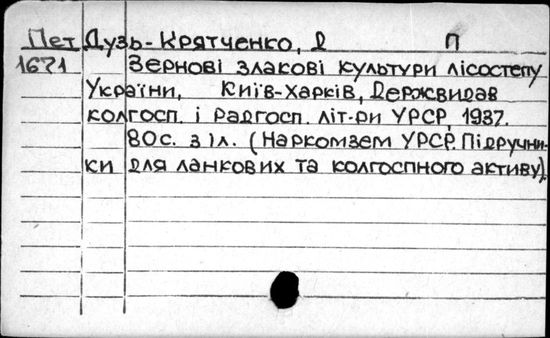 Пет Дузь-Крятченко, Д П
1671 Зернові злакові культури лісостепу
України, Київ-Харків, Держвидав
колгосп. і радгосп. літ-ри УРСР, 1937.
80с. з іл. (Наркомзем УРСР. Підручни-
ки для ланкових та колгоспного активу).